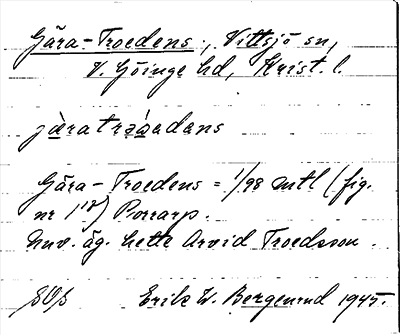 Gära-Troedens, Vittsjö sn,
V. Göinge hd, Krist. l.
Gära-Troedens = 1/98 mtl (fig.
nr 1¹⁸) Porrarp.
Nuv. äg. hette Arvid Troedsson.
Erik W. Bergenrud 1945.